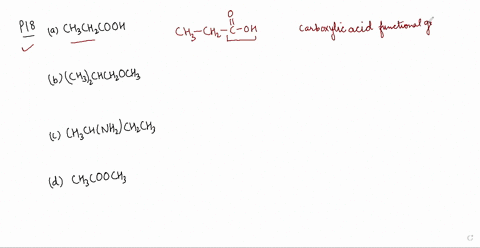 P18 (a) CH₃CH₂COOH
O
CH₃-CH₂-C-OH
carboxylic acid functional g
(b) (CH₃)₂CHCH₂OCH₃
(c) CH₃CH(NH₂)CH₂CH₃
(d) CH₃COOCH₃